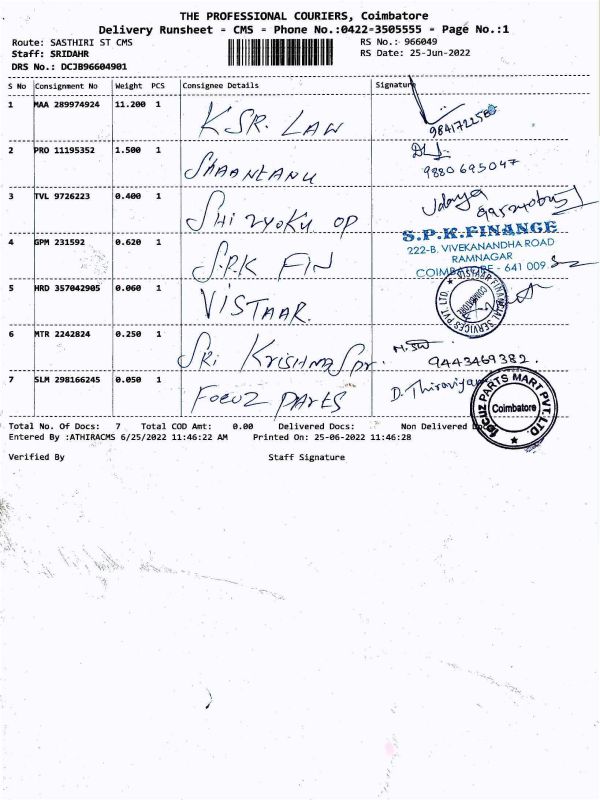 THE PROFESSIONAL COURIERS, Coimbatore
Delivery Runsheet - CMS - Phone No.:0422-3505555 - Page No.:1
Route: SASTHIRI ST CMS RS No.: 966049
Staff: SRIDAHR RS Date: 25-Jun-2022
DRS No.: DCJB96604901
S No Consignment No Weight PCS Consignee Details Signature
1 MAA 289974924 11.200 1 KSR. LAW
2 PRO 11195352 1.500 1 SHAANTANU 9880695047
3 TVL 9726223 0.400 1 SHIZYOKU OP Udaya
S.P.K.FINANCE
222-B, VIVEKANANDHA ROAD
RAMNAGAR
COIMBATORE - 641 009
4 GPM 231592 0.620 1 S.P.K FIN
5 HRD 357042905 0.060 1 VISTAAR.
VISTAAR FINANCIAL SERVICES PVT LTD.
6 MTR 2242824 0.250 1 SRI KRISHNA Spr. 9443469382.
7 SLM 298166245 0.050 1 FOCUZ PARTS D. Thiraviyam
focuz PARTS MART PVT. LTD.
Coimbatore
Total No. Of Docs: 7 Total COD Amt: 0.00 Delivered Docs: Non Delivered
Entered By :ATHIRACMS 6/25/2022 11:46:22 AM Printed On: 25-06-2022 11:46:28
Verified By Staff Signature